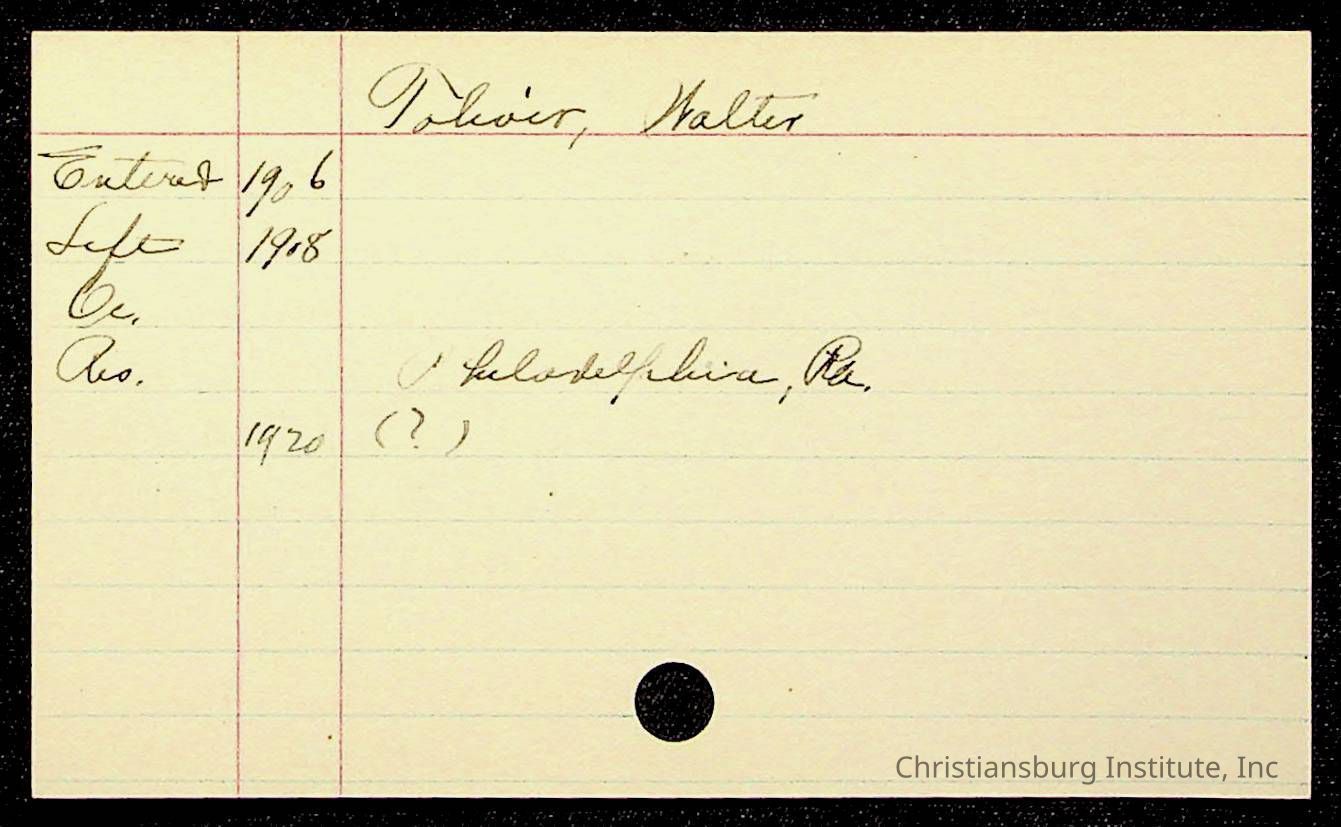 Toliver, Walter
Entered 1906
Left 1908
Oc.
Res. Philadelphia, Pa.
1920 (?)
Christiansburg Institute, Inc